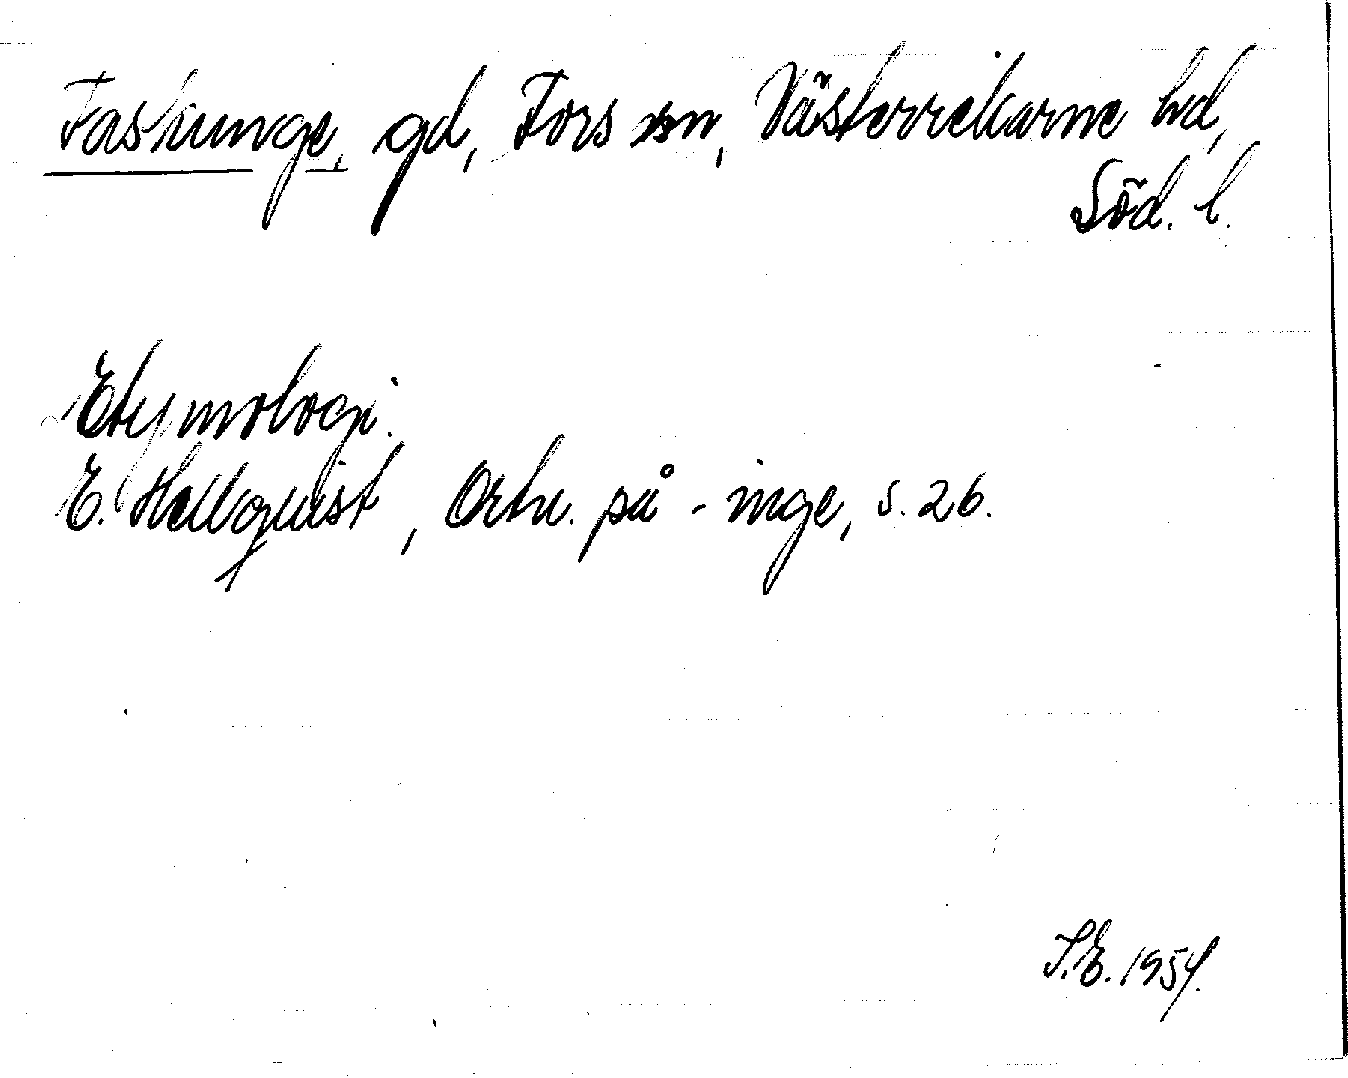 Faskunge, gd, Fors sn, Västerrekarne hd,
Söd. l.
Etymologi.
E. Hellquist, Ortn. på -inge, s. 26.
S.E. 1954.